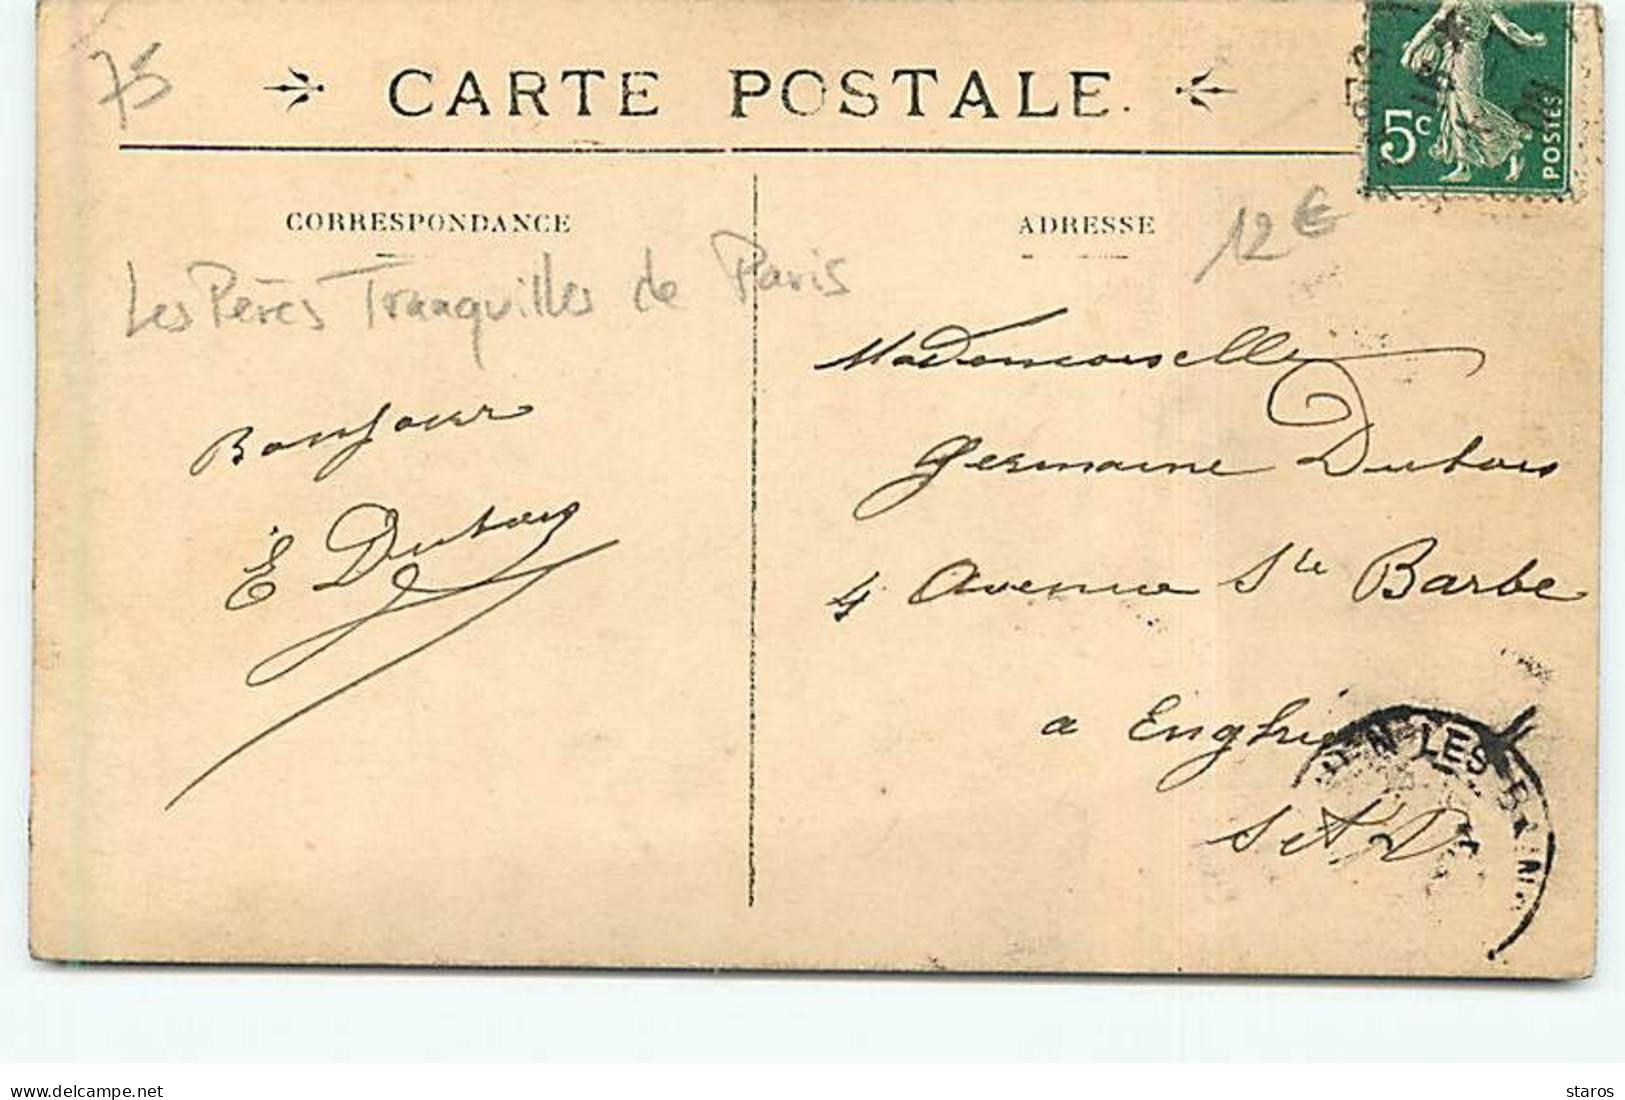 75
CARTE POSTALE.
5c
POSTES
CORRESPONDANCE
ADRESSE
12 €
Les Pères Tranquilles de Paris
Mademoiselle
Bonjour
Germaine Dubois
E Dubois
4 Avenue Ste Barbe
a Enghien
S et O
IEN-LES-BAINS
delcampe.net
staros